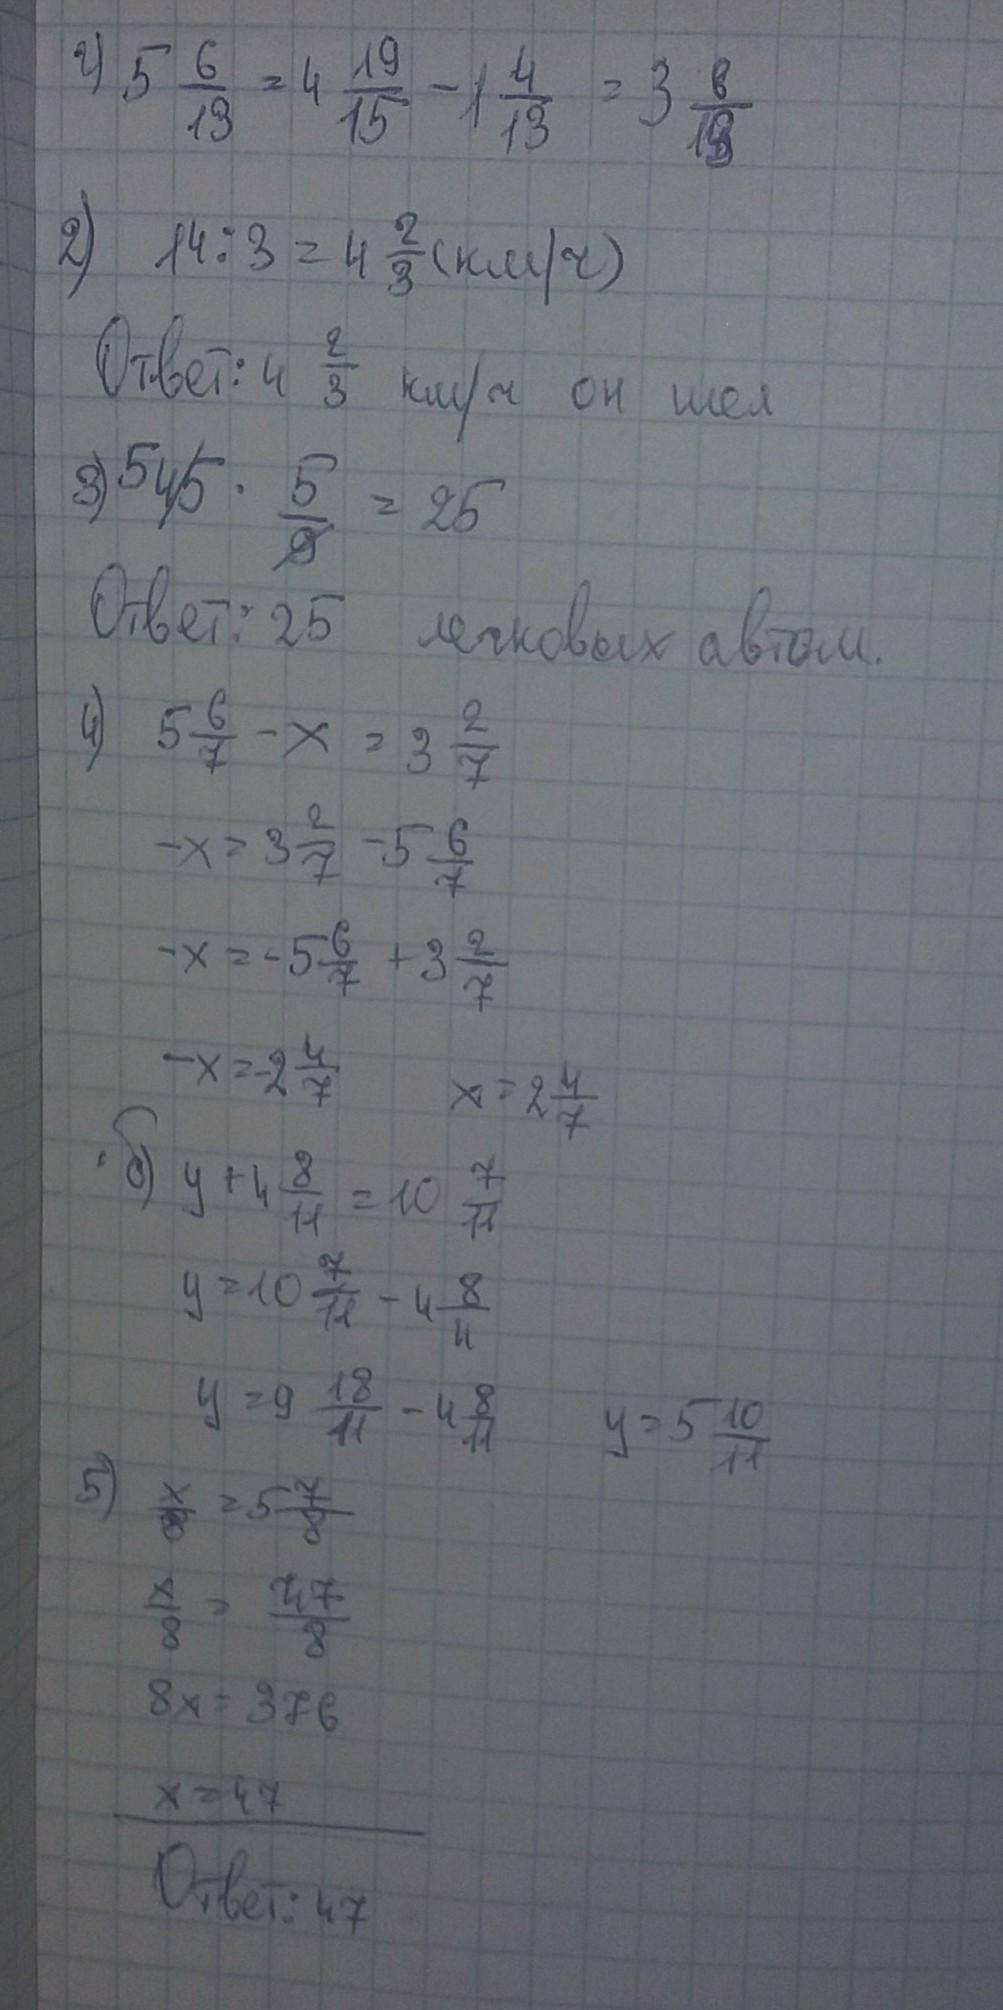 г) 5 6/13 = 4 19/15 - 1 4/13 = 3 8/13
2) 14:3 = 4 2/3 (км/ч)
Ответ: 4 2/3 км/ч он шел
3) 5 45 · 5/9 = 25
Ответ: 25 легковых автом.
4) 5 6/7 - x = 3 2/7
-x = 3 2/7 - 5 6/7
-x = -5 6/7 + 3 2/7
-x = -2 4/7 x = 2 4/7
б) y + 4 8/11 = 10 7/11
y = 10 7/11 - 4 8/11
y = 9 18/11 - 4 8/11 y = 5 10/11
5) x/8 = 5 7/8
x/8 = 47/8
8x = 376
x = 47
Ответ: 47